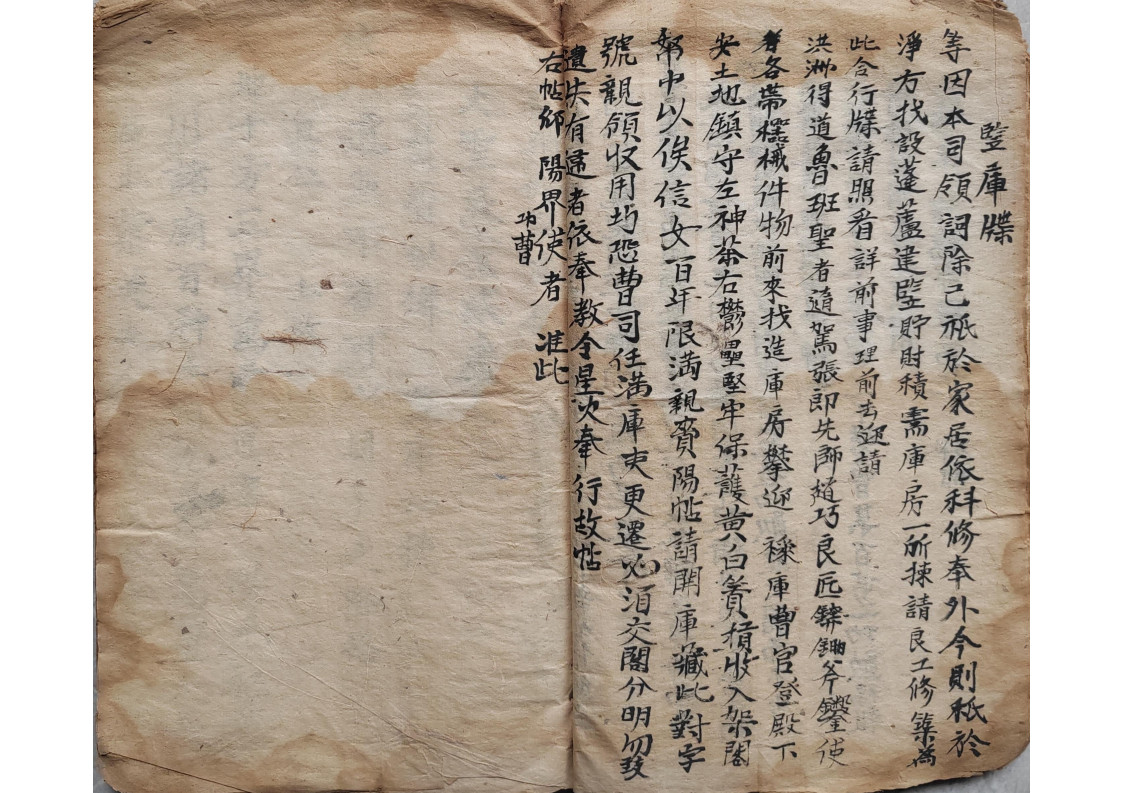 竪庫牒
等因本司領詞除已祇於家居依科修奉外今則祇於
淨方找設蓬蘆建竪貯財積需庫房一所揀請良工修築為
此合行牒請照看詳前事理前去迎請
洪洲得道魯班聖者遥駕張郎先師趙巧良匠鏴鋤斧鑿使
者各帶樑械件物前來找造庫房攀迎祿庫曹官登殿下
安土地鎮守左神荼右鬱壘堅牢保護黄白簀積收入架閣
帑中以俟信女百年限满親賫陽帖請開庫藏此對字
號親領收用圬恐曹司任满庫吏更遷必須交閣分明勿致
遺失有違者依奉教令星火奉行故帖
右帖仰陽界使者 准此
功曹